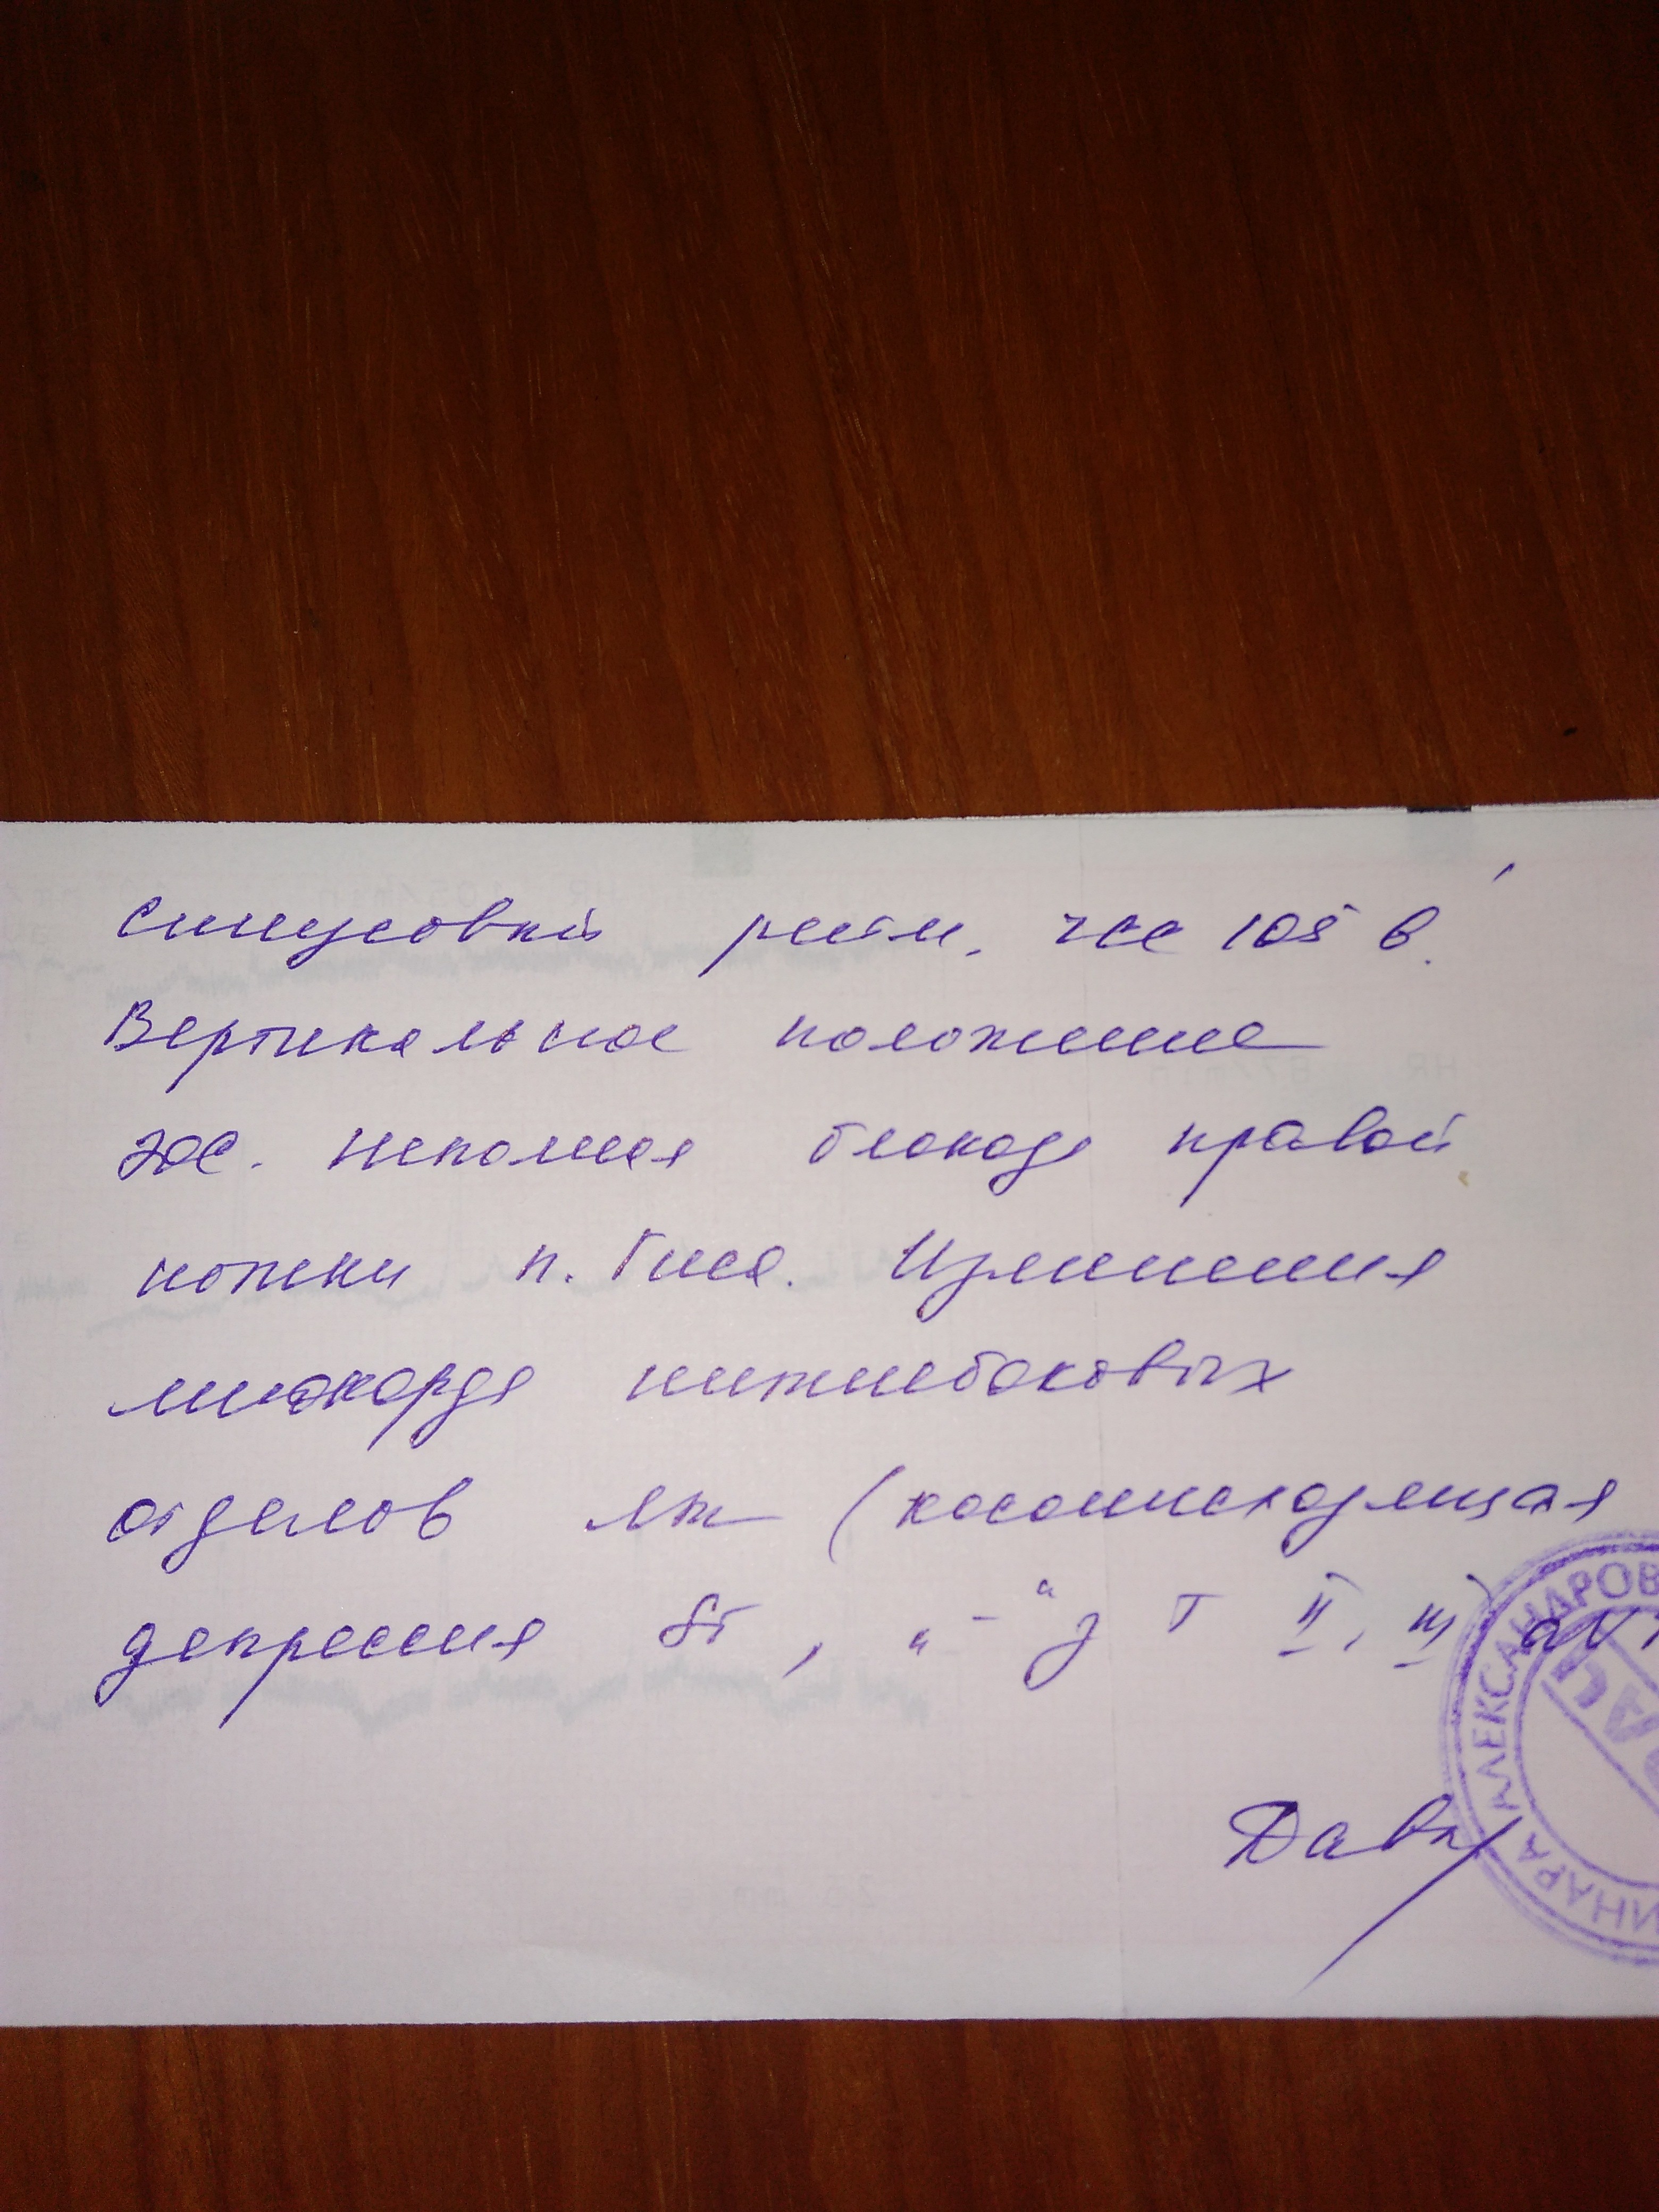 Синусовый ритм. ЧСС 105 в '.
Вертикальное положение
ЭОС. Неполная блокада правой
ножки п. Гиса. Изменения
миокарда нижнебоковых
отделов ЛЖ (косонисходящая
депрессия ST, „-“ з T II, III, aVF
АЛЕКСАНДРОВ
ИНАРА